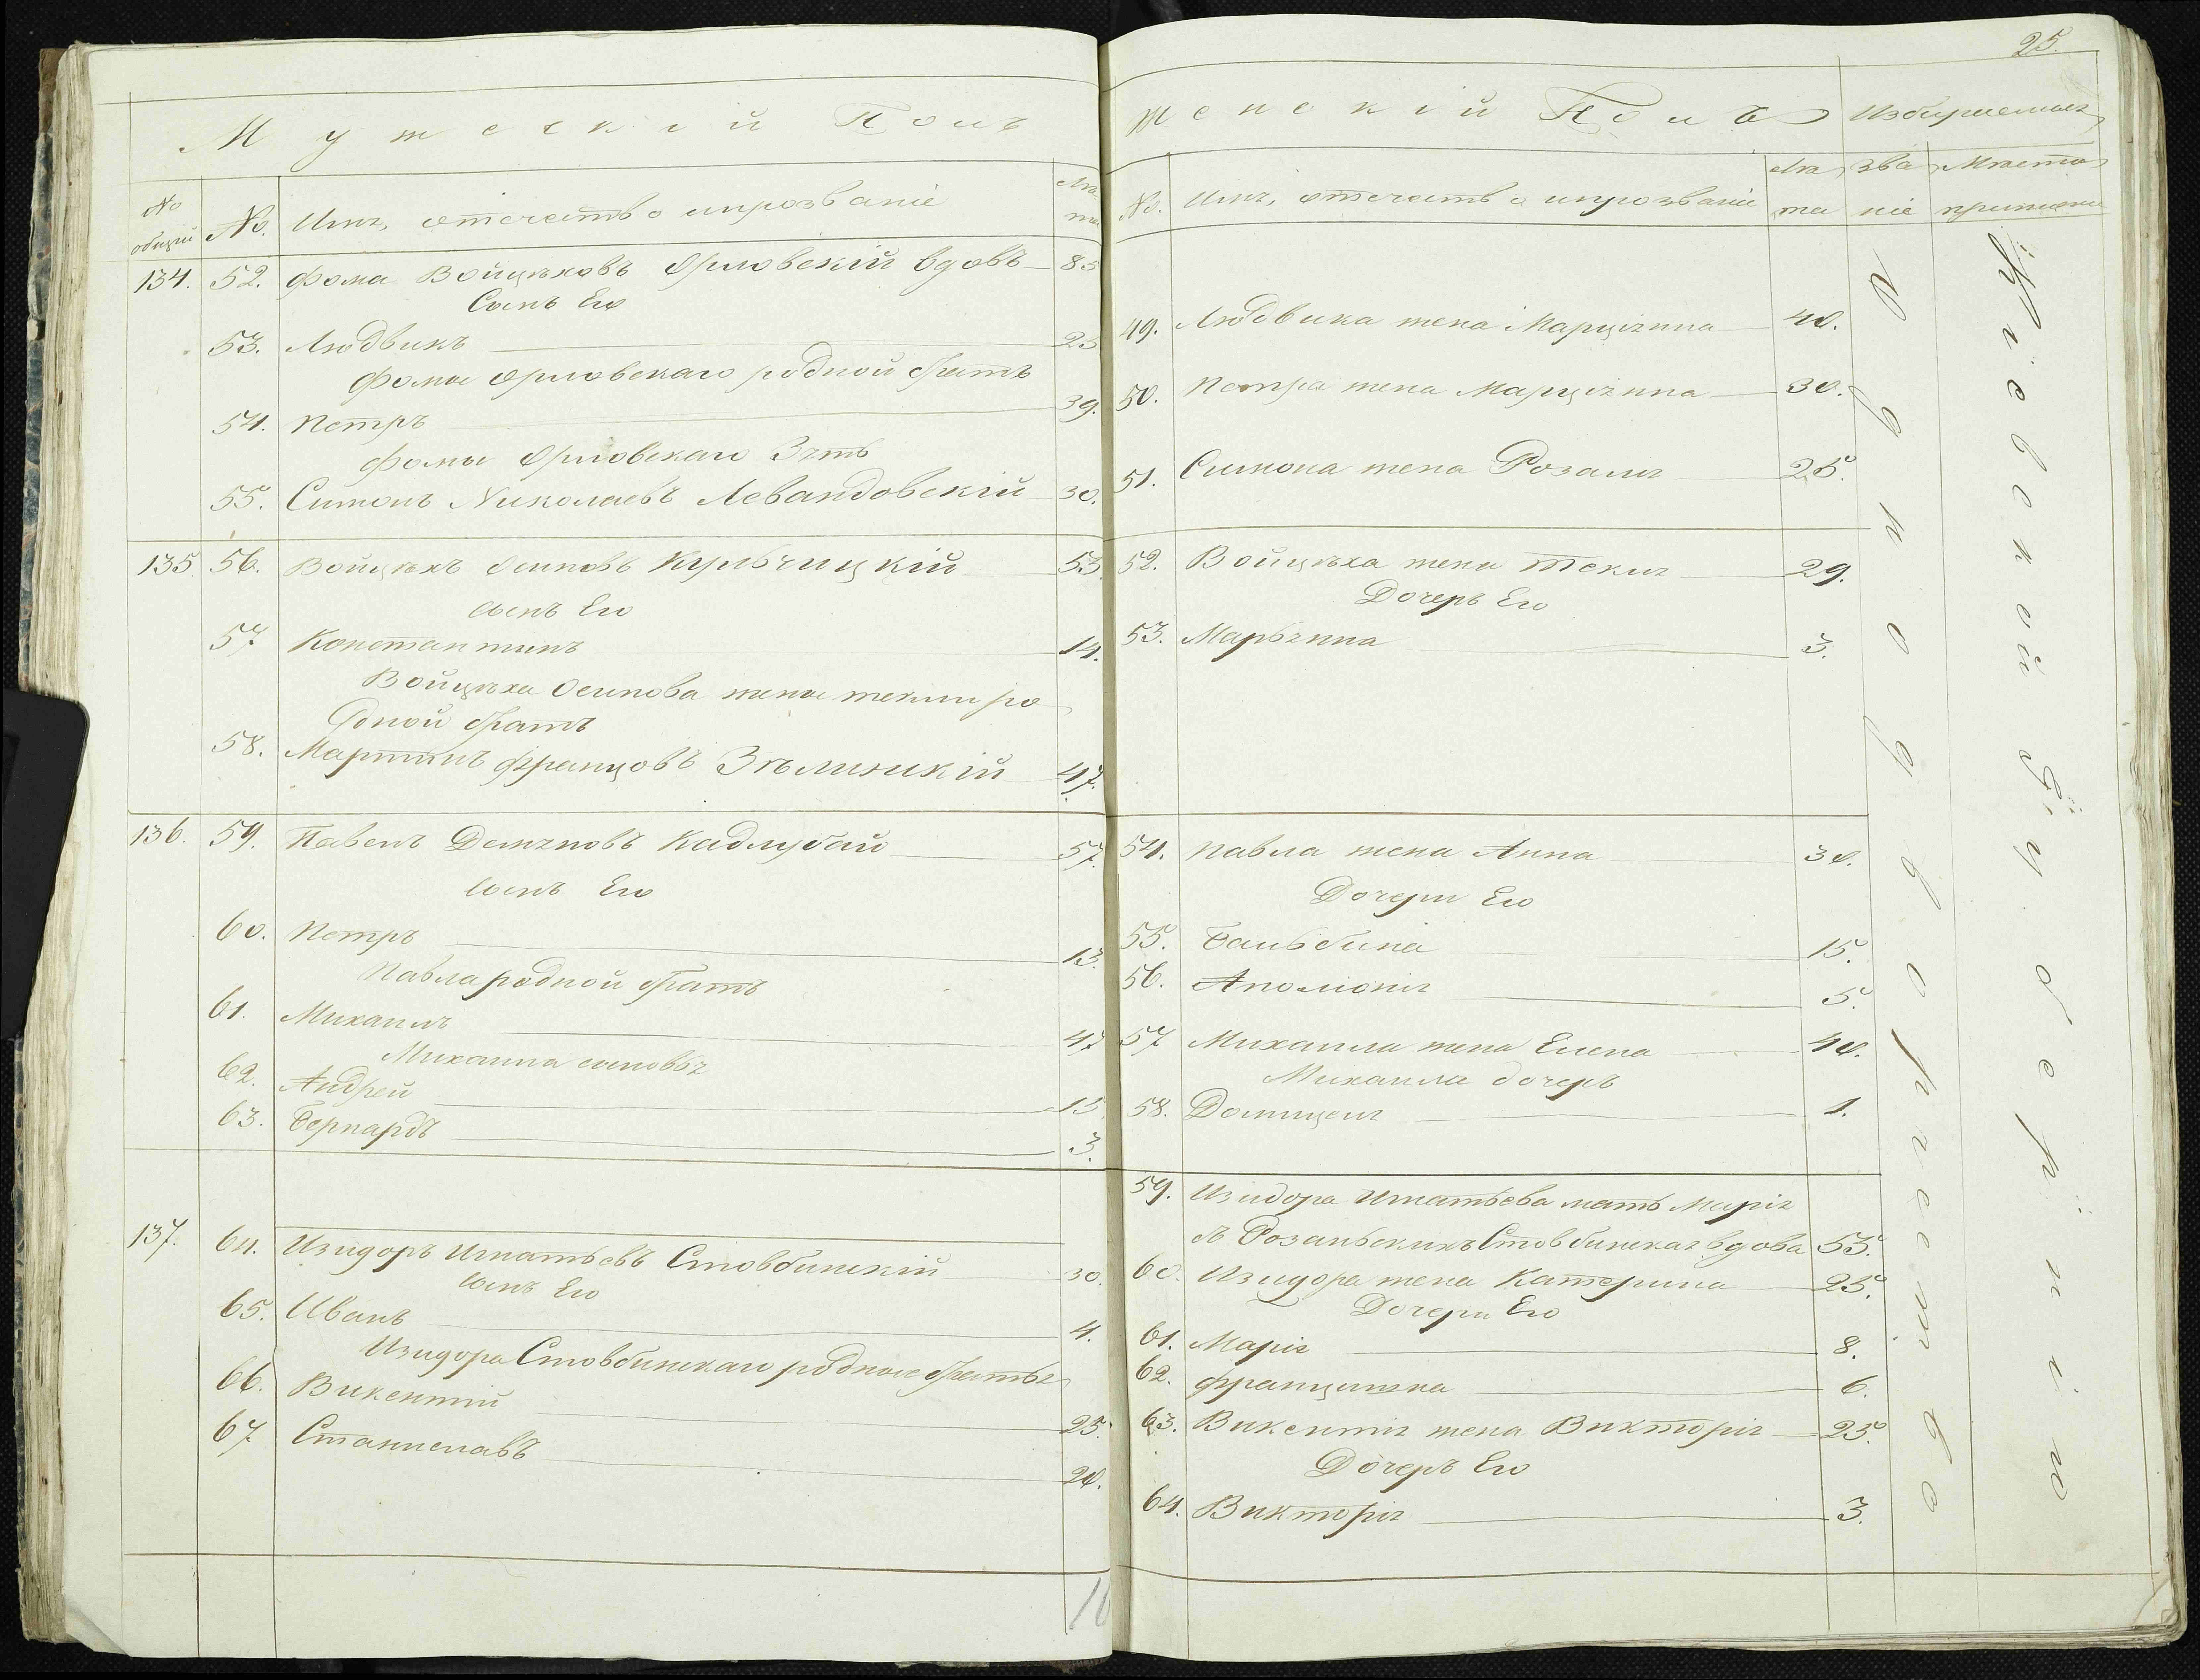 Мужескій Полъ
№ общій № Имя, отечество и прозваніе Лѣта
134. 52. Фома Войцѣховъ Орловскій вдовъ 85
Сынъ Его
53. Людвикъ 25
Фомы Орловскаго родной братъ
54. Петръ 39.
Фомы Орловскаго Зять
55. Симонъ Николаевъ Левандовскій 30.
135 56. Войцѣхъ Осиповъ Кульчицкій 53.
сынъ Его
57 Константинъ 14.
Войцѣха Осипова жены Текли ро
дной братъ
58. Мартинъ Францовъ Зѣлинскій 47.
136. 59. Павелъ Демяновъ Кадлубай 57.
сынъ Его
60. Петръ 13.
Павла родной братъ
61. Михаилъ 47
Михаила сыновья
62. Андрей 15
63. Бернардъ 3.
137. 64. Изидоръ Игнатьевъ Стовбинскій 30.
сынъ Его
65. Иванъ 4.
Изидора Стовбинскаго родные братья
66. Викентій 25.
67 Станиславъ 20.
16
25.
Женскій Полъ Избираемыя
№. Имя, отечество и прозваніе Лѣта Званіе Мѣсто приписки
49. Людовика жена Марціянна 40.
50. Петра жена Марціянна 30.
51. Симона жена Розалія 25.
52. Войцѣха жена Текля 29.
Дочеръ Его
53. Марьянна 3.
54. Павла жена Анна 30.
Дочери Его
55. Бальбина 15.
56. Аполіонія 5.
57 Михаила жена Елена 40.
Михаила дочеръ
58. Доминцеля 1.
59. Изидора Игнатьева мать Марія
съ Розальскихъ Стовбинская вдова 53.
60. Изидора жена Катерина 25.
Дочери Его
61. Марія 8.
62. Францишка 6.
63. Викентія жена Викторія 25.
Дочеръ Его
64. Викторія 3.
Однодворчество
Кіевской губерніи